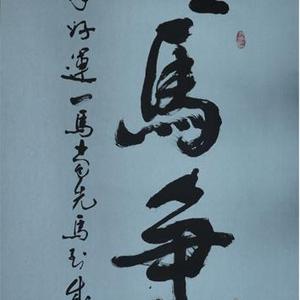 馬争
好運一馬當先馬到成